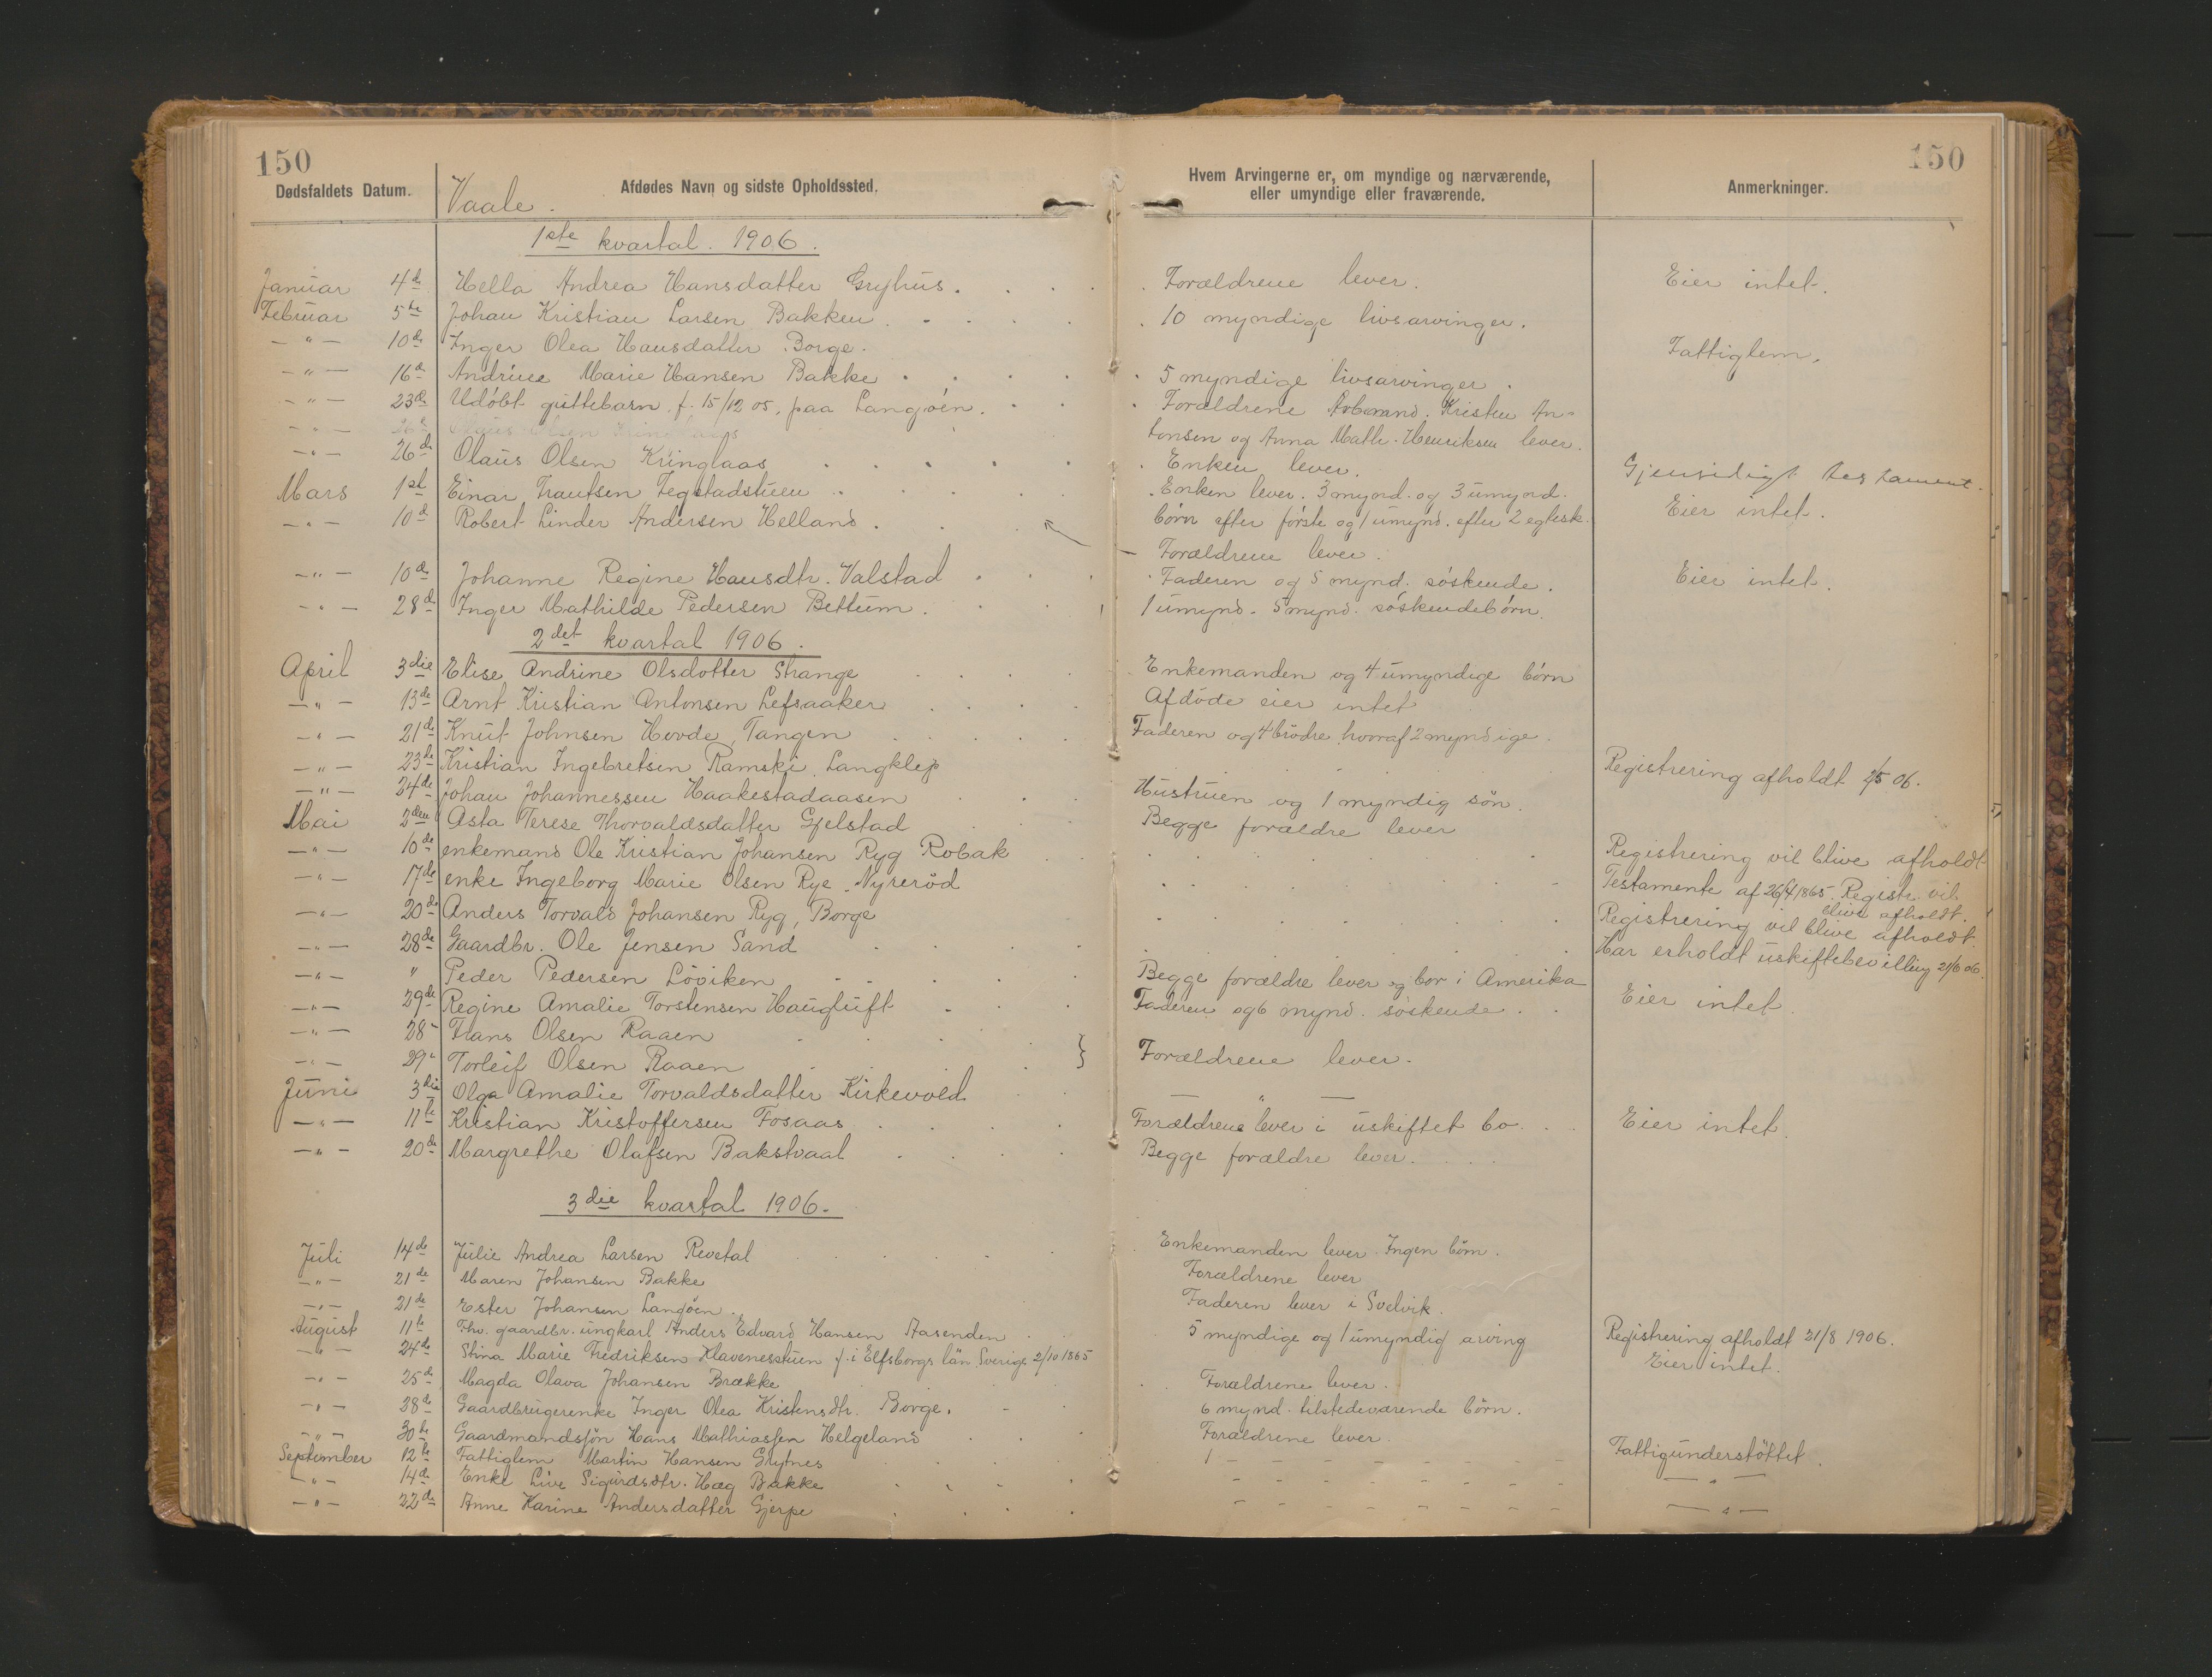 150
150
Dødsfaldets Datum.
Vaale.
Afdødes Navn og sidste Opholdssted.
Hvem Arvingerne er, om myndige og nærværende,
eller umyndige eller fraværende.
Anmerkninger.
1ste kvartal. 1906.
Januar 4de Hella Andrea Hansdatter Gryhus. Forældrene lever. Eier intet.
Februar 5te Johan Kristian Larsen Bakken. 10 myndige livsarvinger.
-"- 10de Inger Olea Hansdatter Borge. Fattiglem.
-"- 16de Andrine Marie Hansen Bakke 5 myndige livsarvinger.
-"- 23de Udøbt guttebarn f. 15/12 05, paa Langøen. Forældrene Kristen An-
tonsen og Anna Math. Henriksen lever.
-"- 26de Olaus Olsen Kringlaas Enken lever. Gjensidigt testament.
Mars 1ste Einar Frantsen Tegstadstuen Enken lever. 3 mynd. og 3 umynd. Eier intet.
-"- 10de Robert Linder Andersen Helland. børn efter første og 1 umynd. efter 2 egtesk.
Forældrene lever.
-"- 10de Johanne Regine Hansdtr. Valstad Faderen og 5 mynd. søskende. Eier intet.
-"- 28de Inger Mathilde Pedersen Bettum. 1 umynd. 5 mynd. søskendebørn.
2det kvartal 1906.
April 3die Elise Andrine Olsdotter Strange Enkemanden og 4 umyndige børn
-"- 13de Arnt Kristian Antonsen Lefsaaker Afdøde eier intet
-"- 21de Knut Johnsen Hovde, Tangen Faderen og 4 brødre hvoraf 2 myndige.
-"- 23de Kristian Ingebretsen Ramski, Langklep Registrering afholdt 2/5 06.
-"- 24de Johan Johannessen Haakestadaasen Hustruen og 1 myndig søn.
Mai 2den Asta Terese Thorvaldsdatter Gjelstad Begge forældre lever
-"- 10de enkemand Ole Kristian Johansen Ryg Robak Registrering vil blive afholdt
-"- 17de enke Ingeborg Marie Olsen Rye Nyrerød Testamente af 26/4 1865. Registr. vil
blive afholdt.
-"- 20de Anders Torvald Johansen Ryg, Borge Registrering vil blive afholdt.
-"- 28de Gaardbr. Ole Jensen Sand Har erholdt uskiftebevilling 21/6 06.
-"- " Peder Pedersen Løviken Begge forældre lever og bor i Amerika
-"- 29de Regine Amalie Torstensen Haugluft Faderen og 6 mynd. søskende. Eier intet.
-"- 28" Hans Olsen Raaen
-"- 29" Torleif Olsen Raaen } Forældrene lever.
Juni 3die Olga Amalie Torvaldsdatter Kirkevold — " —
-"- 11te Kristian Kristoffersen Fosaas Forældrene lever i uskiftet bo. Eier intet.
-"- 20de Margrethe Olafsen Bakstvaal Begge forældre lever.
3die kvartal 1906.
Juli 14de Julie Andrea Larsen Revetal Enkemanden lever. Ingen børn.
-"- 21de Maren Johansen Bakke Forældrene lever
-"- 21de Ester Johansen Langøen. Faderen lever i Svelvik.
August 11te Fhv. gaardbr. ungkarl Anders Edvard Hansen Aasenden 5 myndige og 1 umyndig arving Registrering afholdt 21/8 1906.
-"- 24de Stina Marie Fredriksen Klavenesstuen f. i Elfsborgs län Sverige 2/10 1865 Eier intet.
-"- 25de Magda Olava Johansen Brække Forældrene lever.
-"- 28de Gaardbrugerenke Inger Olea Kristensdtr. Borge. 6 mynd. tilstedeværende børn.
-"- 30te Gaardmandssøn Hans Mathiassen Helgeland Forældrene lever.
September 12te Fattiglem Martin Hansen Grytnes Fattigunderstøttet.
-"- 14de Enke Live Sigurdsdtr. Hæg Bakke — " —
-"- 22de Anne Karine Andersdatter Gjerpe — " —